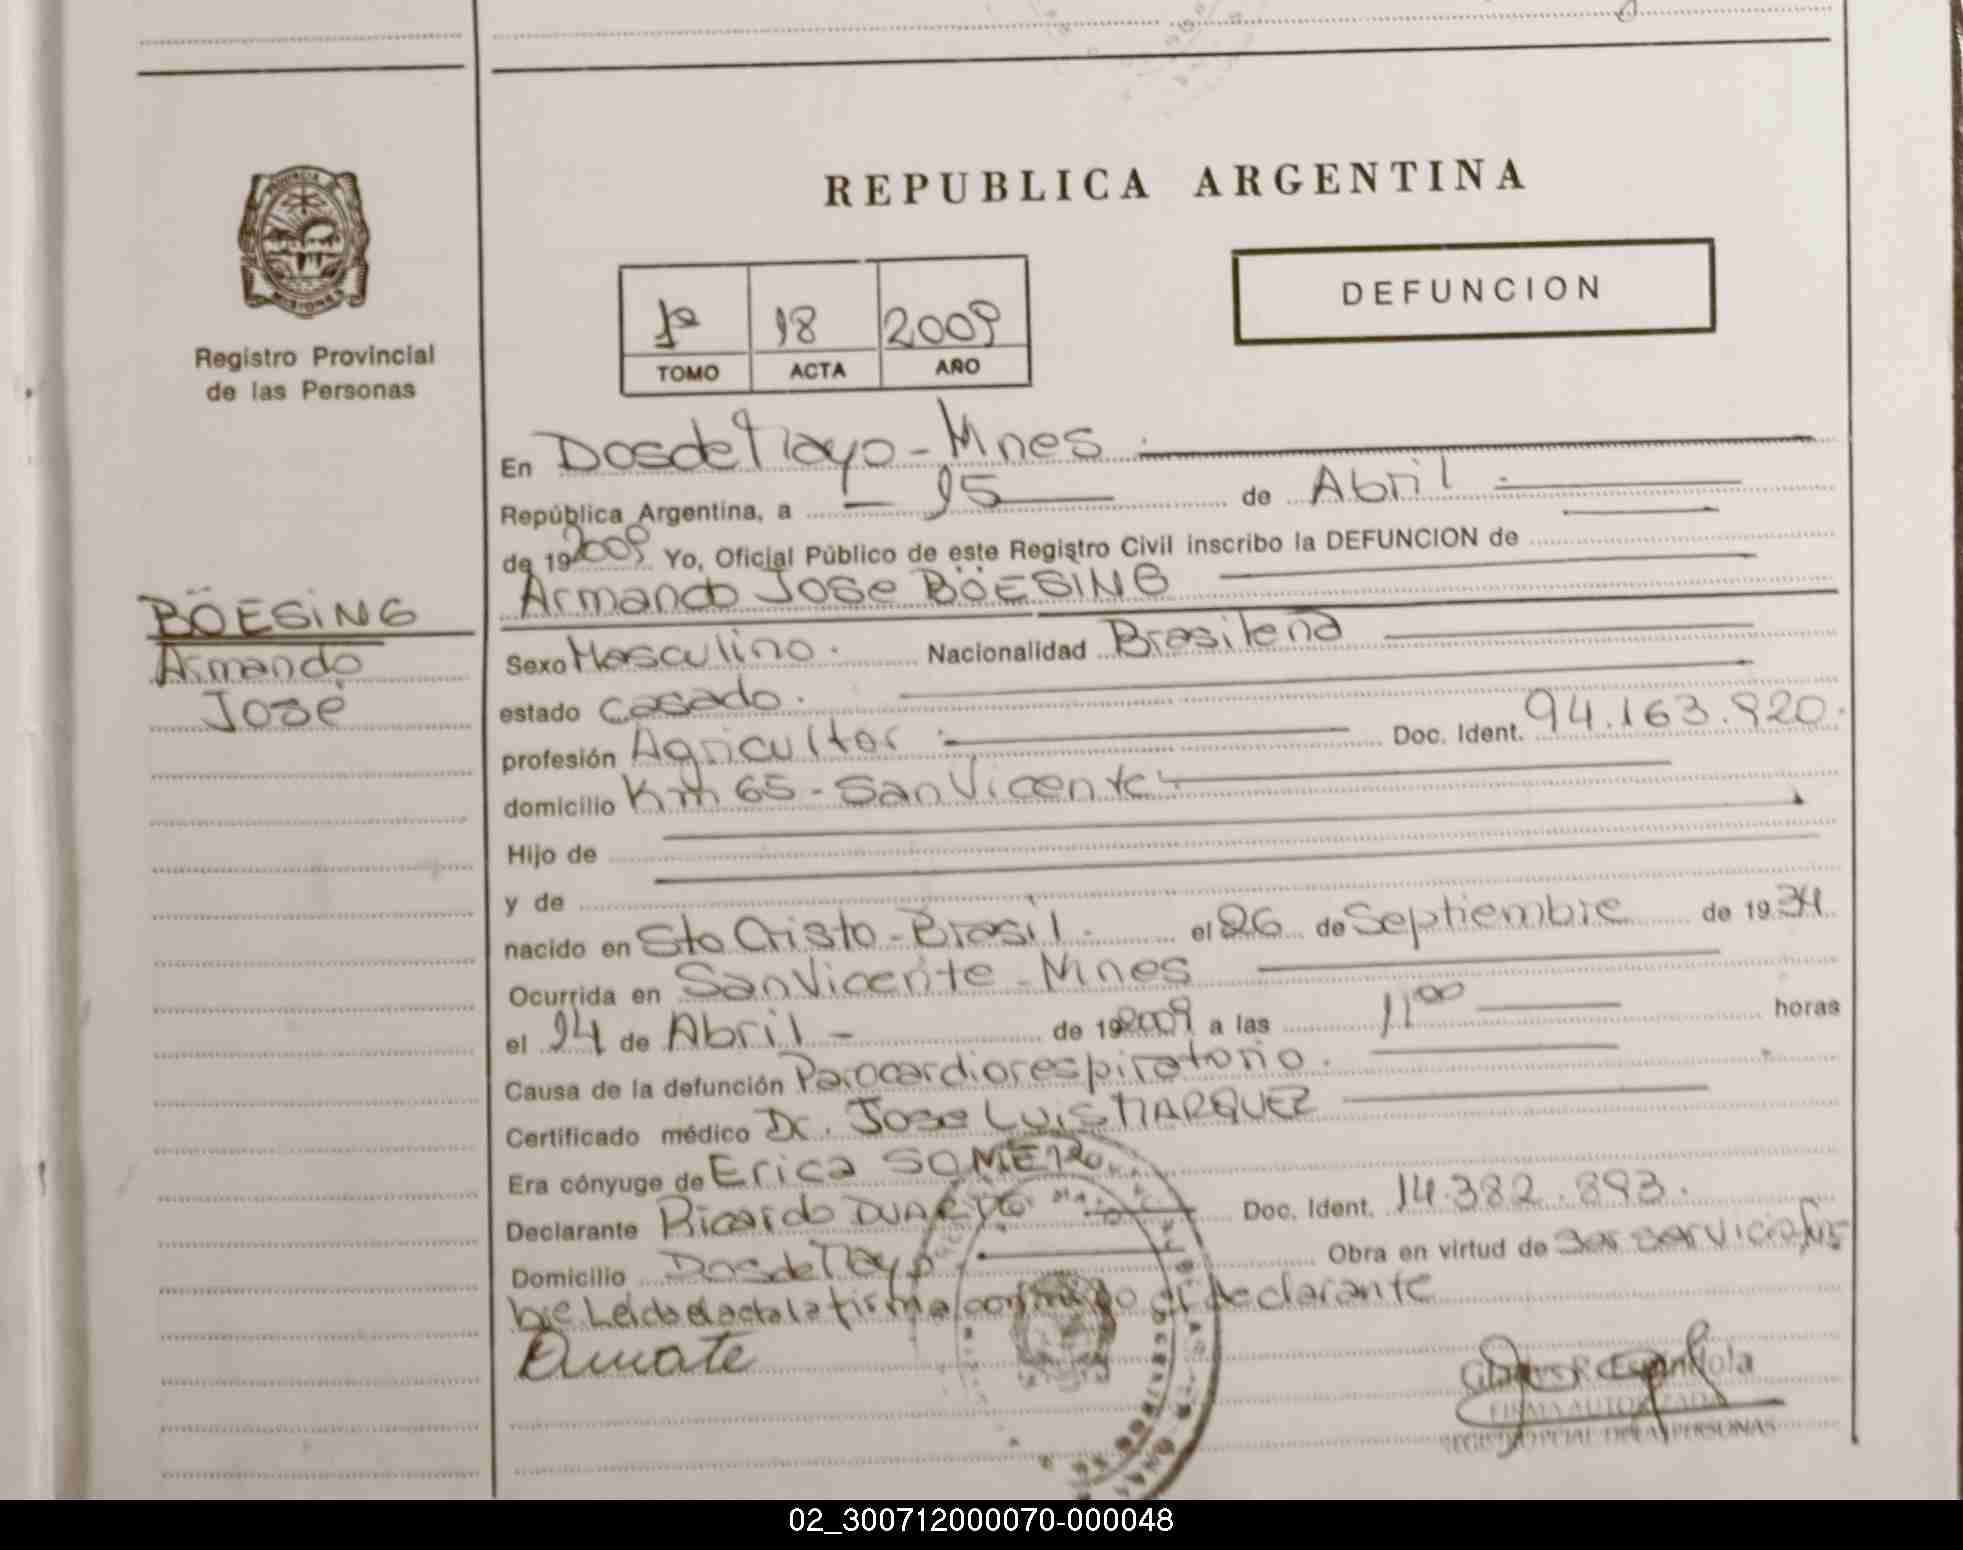 PROVINCIA DE MISIONES
Registro Provincial
de las Personas
REPUBLICA ARGENTINA
1º 18 2009
TOMO ACTA AÑO
DEFUNCION
En Dos de Mayo - Mnes
República Argentina, a 15 de Abril
de 19 2009 Yo, Oficial Público de este Registro Civil inscribo la DEFUNCION de
Armando Jose BÖESING
BÖESING
Armando
José
Sexo Masculino. Nacionalidad Brasileña
estado casado.
profesión Agricultor Doc. Ident. 94.163.920.
domicilio Km 65 - San Vicente
Hijo de
y de
nacido en Sto Cristo - Brasil. el 26 de Septiembre de 1934
Ocurrida en San Vicente - Mnes
el 14 de Abril - de 19 2009 a las 11 00 horas
Causa de la defunción Parocardiorespiratorio.
Certificado médico Dr. Jose Luis MARQUEZ
Era cónyuge de Erica
Declarante Ricardo DUARTE Doc. Ident. 14.382.893.
Domicilio Dos de Mayo Obra en virtud de ser servicio fúne
bre Leida el acta la firma conmigo el declarante
Duarte
Española
FIRMA AUTORIZADA
REGISTRO PCIAL. DE LAS PERSONAS
02_300712000070-000048